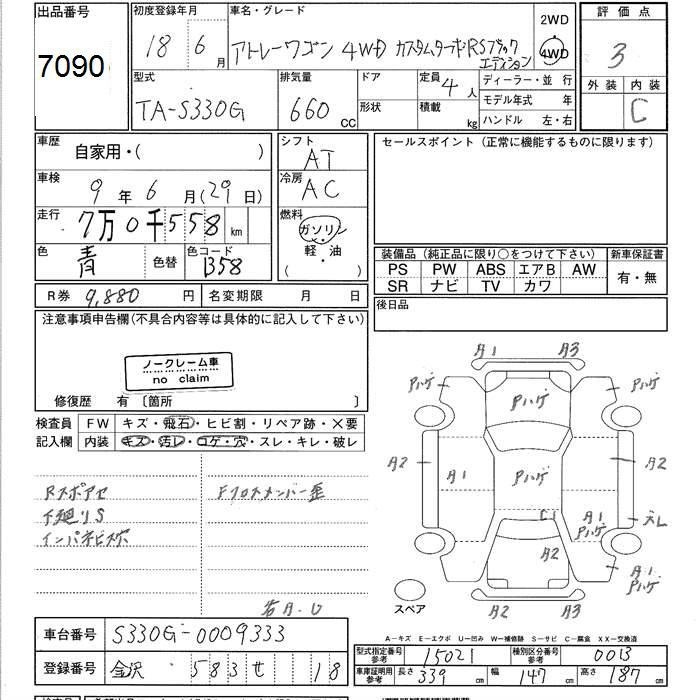 出品番号
7090
初度登録年月
18年6月
車名・グレード
アトレーワゴン 4WD カスタムターボRSブラック
エディション
2WD
4WD
評価点
3
外装 内装
C
型式
TA-S330G
排気量
660 CC
ドア
形状
定員 4人
積載 kg
ディーラー・並行
モデル年式 年
ハンドル 左・右
車歴
自家用・( )
車検
9年6月(29日)
走行
7万0千558 km
色
青
色替
色コード
B58
シフト
AT
冷房
AC
燃料
ガソリン
軽・油
( )
セールスポイント(正常に機能するものに限ります)
装備品(純正品に限り○をつけて下さい)
新車保証書
PS PW ABS エアB AW
SR ナビ TV カワ
有・無
R券 9,880円
名変期限 月 日
後日品
注意事項申告欄(不具合内容等は具体的に記入して下さい)
ノークレーム車
no claim
修復歴 有〔箇所 〕
検査員
記入欄
FW キズ・飛石・ヒビ割・リペア跡・×要
内装 キズ・汚レ・コゲ・穴・スレ・キレ・破レ
Rスポアセ
下廻りS
インパネビス穴
Fクロスメンバー歪
若A.U
A1 A3
Pハゲ Pハゲ Pハゲ
A2 A1 Pハゲ A2
C1 A1 Pハゲ スレ
A2
A1 Pハゲ
A2 A3
スペア
A-キズ E-エクボ U-凹み W-補修跡 S-サビ C-腐食 XX-交換済
車台番号
S330G-0009333
登録番号
金沢 583 せ 18
型式指定番号
参考
15021
種別区分番号
参考
0013
車庫証明用
参考
長さ 339 cm
幅 147 cm
高さ 187 cm